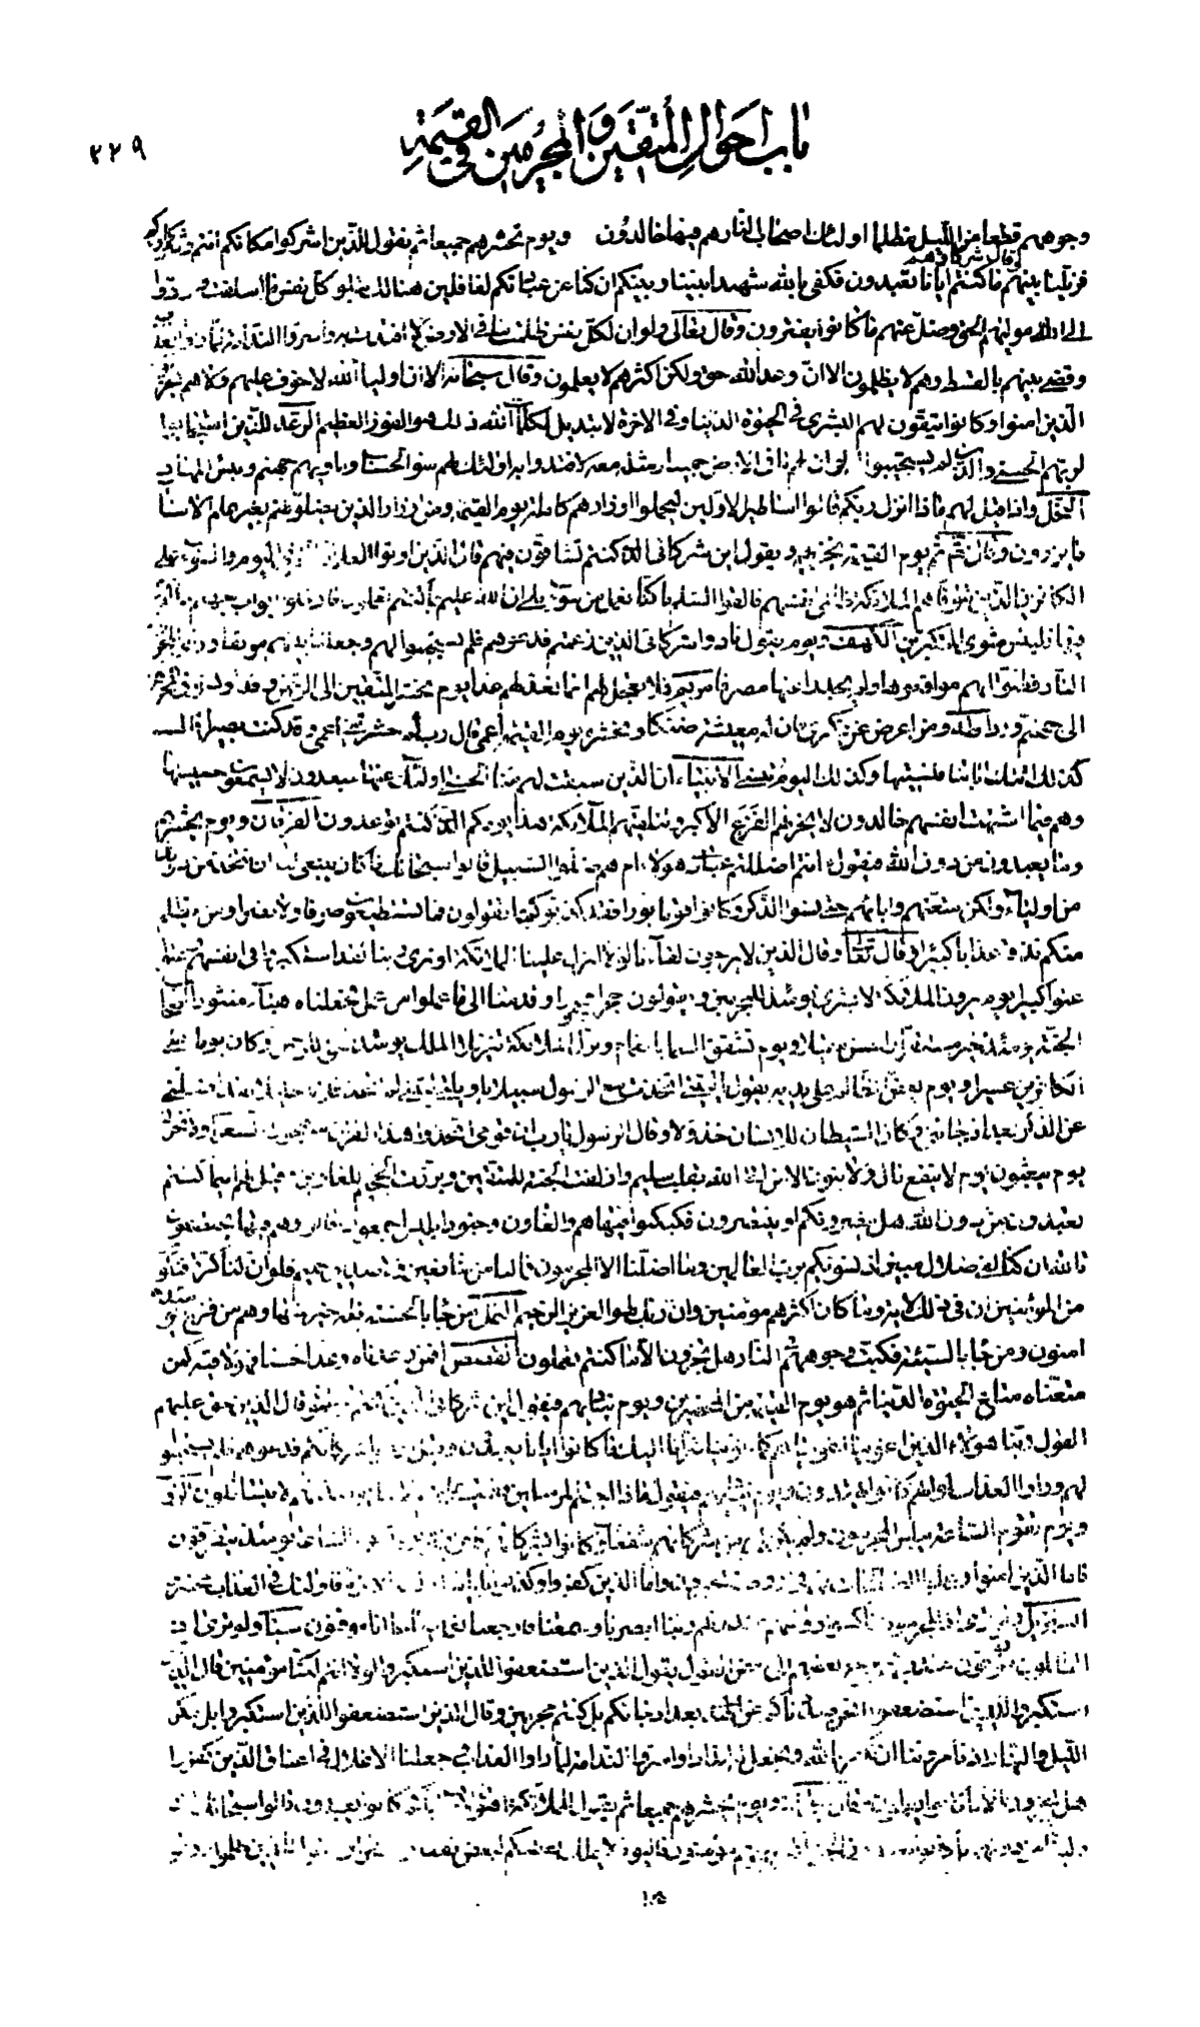 باب احوال المتقين والمجرمين في القيمة
٢٢٩
وجوههم قطعا من الليل مظلما اولئك اصحاب النار هم فيها خالدون ويوم نحشرهم جميعا ثم نقول للذين اشركوا مكانكم انتم وشركاؤكم
وقال شركاؤهم
فزيلنا بينهم ما كنتم ايانا تعبدون فكفى بالله شهيدا بيننا وبينكم ان كنا عن عبادتكم لغافلين هنالك تبلو كل نفس ما اسلفت وردوا
الى الله موليهم الحق وضل عنهم ما كانوا يفترون وقال تعالى ولو ان لكل نفس ظلمت ما في الارض لافتدت به واسروا الندامة لما راوا العذاب
وقضى بينهم بالقسط وهم لا يظلمون الا ان وعد الله حق ولكن اكثرهم لا يعلمون وقال سبحانه الا ان اولياء الله لا خوف عليهم ولا هم يحزنون
الذين امنوا وكانوا يتقون لهم البشرى في الحيوة الدنيا وفي الاخرة لا تبديل لكلمات الله ذلك هو الفوز العظيم الرعد للذين استجابوا
لربهم الحسنى والذين لم يستجيبوا له لو ان لهم ما في الارض جميعا ومثله معه لافتدوا به اولئك لهم سوء الحساب وماويهم جهنم وبئس المهاد
النحل واذا قيل لهم ماذا انزل ربكم قالوا اساطير الاولين ليحملوا اوزارهم كاملة يوم القيمة ومن اوزار الذين يضلونهم بغير علم الا ساء
ما يزرون وقال ثم يوم القيمة يخزيهم ويقول اين شركائى الذين كنتم تشاقون فيهم قال الذين اوتوا العلم ان الخزي اليوم والسوء على
الكافرين الذين تتوفاهم الملائكة ظالمى انفسهم فالقوا السلم ما كنا نعمل من سوء بلى ان الله عليم بما كنتم تعملون فادخلوا ابواب جهنم خالدين
فيها فلبئس مثوى المتكبرين الكهف ويوم يقول نادوا شركائى الذين زعمتم فدعوهم فلم يستجيبوا لهم وجعلنا بينهم موبقا وراى المجرمون
النار فظنوا انهم مواقعوها ولم يجدوا عنها مصرفا مريم فلا تعجل عليهم انما نعد لهم عدا يوم نحشر المتقين الى الرحمن وفدا ونسوق المجرمين
الى جهنم وردا طه ومن اعرض عن ذكرى فان له معيشة ضنكا ونحشره يوم القيمة اعمى قال رب لم حشرتنى اعمى وقد كنت بصيرا قال
كذلك اتتك اياتنا فنسيتها وكذلك اليوم تنسى الانبياء ان الذين سبقت لهم منا الحسنى اولئك عنها مبعدون لا يسمعون حسيسها
وهم فيما اشتهت انفسهم خالدون لا يحزنهم الفزع الاكبر وتتلقيهم الملائكة هذا يومكم الذي كنتم توعدون الفرقان ويوم يحشرهم
وما يعبدون من دون الله فيقول ءانتم اضللتم عبادى هؤلاء ام هم ضلوا السبيل قالوا سبحانك ما كان ينبغى لنا ان نتخذ من دونك
من اولياء ولكن متعتهم واباءهم حتى نسوا الذكر وكانوا قوما بورا فقد كذبوكم بما تقولون فما تستطيعون صرفا ولا نصرا ومن يظلم
منكم نذقه عذابا كبيرا وقال تعالى وقال الذين لا يرجون لقاءنا لولا انزل علينا الملائكة او نرى ربنا لقد استكبروا في انفسهم وعتوا
عتوا كبيرا يوم يرون الملائكة لا بشرى يومئذ للمجرمين ويقولون حجرا محجورا وقدمنا الى ما عملوا من عمل فجعلناه هباء منثورا اصحاب
الجنة يومئذ خير مستقرا واحسن مقيلا ويوم تشقق السماء بالغمام ونزل الملائكة تنزيلا الملك يومئذ الحق للرحمن وكان يوما على
الكافرين عسيرا ويوم يعض الظالم على يديه يقول يا ليتنى اتخذت مع الرسول سبيلا يا ويلتى ليتنى لم اتخذ فلانا خليلا لقد اضلنى
عن الذكر بعد اذ جاءنى وكان الشيطان للانسان خذولا وقال الرسول يا رب ان قومى اتخذوا هذا القرآن مهجورا الشعراء ولا تخزنى
يوم يبعثون يوم لا ينفع مال ولا بنون الا من اتى الله بقلب سليم وازلفت الجنة للمتقين وبرزت الجحيم للغاوين وقيل لهم اينما كنتم
تعبدون من دون الله هل ينصرونكم او ينتصرون فكبكبوا فيها هم والغاون وجنود ابليس اجمعون قالوا وهم فيها يختصمون
تالله ان كنا لفى ضلال مبين اذ نسويكم برب العالمين وما اضلنا الا المجرمون فما لنا من شافعين ولا صديق حميم فلو ان لنا كرة فنكون
من المؤمنين ان في ذلك لاية وما كان اكثرهم مؤمنين وان ربك لهو العزيز الرحيم النمل من جاء بالحسنة فله خير منها وهم من فزع يومئذ
امنون ومن جاء بالسيئة فكبت وجوههم في النار هل تجزون الا ما كنتم تعملون القصص افمن وعدناه وعدا حسنا فهو لاقيه كمن
متعناه متاع الحيوة الدنيا ثم هو يوم القيمة من المحضرين ويوم يناديهم فيقول اين شركائى الذين كنتم تزعمون قال الذين حق عليهم
القول ربنا هؤلاء الذين اغوينا اغويناهم كما غوينا تبرانا اليك ما كانوا ايانا يعبدون وقيل ادعوا شركاءكم فدعوهم فلم يستجيبوا
لهم وراوا العذاب لو انهم كانوا يهتدون ويوم يناديهم فيقول ماذا اجبتم المرسلين فعميت عليهم الانباء يومئذ فهم لا يتساءلون الروم
ويوم تقوم الساعة يبلس المجرمون ولم يكن لهم من شركائهم شفعاء وكانوا بشركائهم كافرين ويوم تقوم الساعة يومئذ يتفرقون
فاما الذين امنوا وعملوا الصالحات فهم في روضة يحبرون واما الذين كفروا وكذبوا باياتنا ولقاء الاخرة فاولئك في العذاب محضرون
التنزيل ولو ترى اذ المجرمون ناكسوا رؤسهم عند ربهم ربنا ابصرنا وسمعنا فارجعنا نعمل صالحا انا موقنون سبأ ولو ترى اذ
الظالمون موقوفون عند ربهم يرجع بعضهم الى بعض القول يقول الذين استضعفوا للذين استكبروا لولا انتم لكنا مؤمنين قال الذين
استكبروا للذين استضعفوا انحن صددناكم عن الهدى بعد اذ جاءكم بل كنتم مجرمين وقال الذين استضعفوا للذين استكبروا بل مكر
الليل والنهار اذ تامروننا ان نكفر بالله ونجعل له اندادا واسروا الندامة لما راوا العذاب وجعلنا الاغلال في اعناق الذين كفروا
هل يجزون الا ما كانوا يعملون وقال تعالى ويوم يحشرهم جميعا ثم يقول للملائكة اهؤلاء اياكم كانوا يعبدون قالوا سبحانك انت